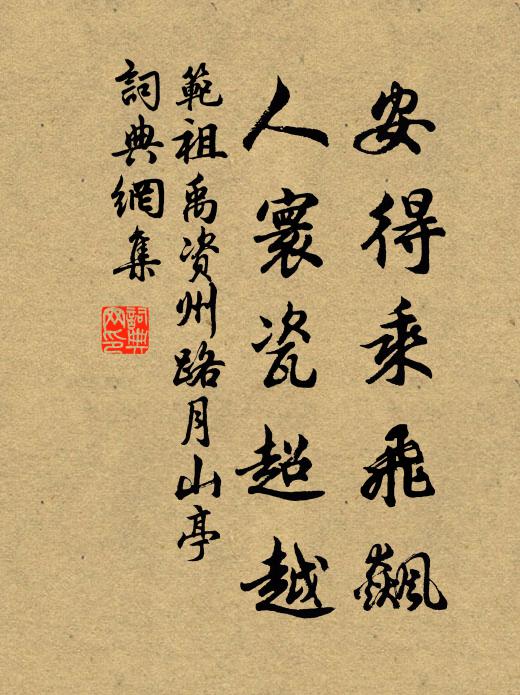 安得乘飛飆
人寰瓷超越
範祖禹資州路月山亭
詞典網集
詞典
网印